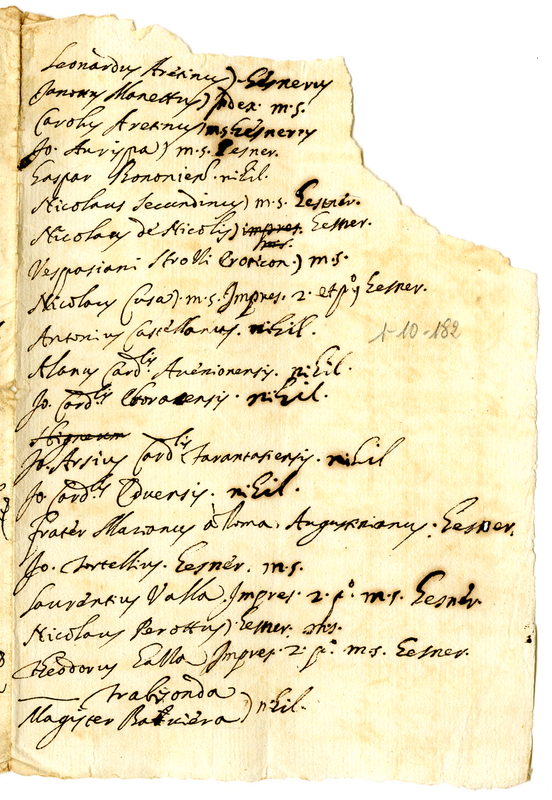 Leonardus Aretinus) Gesnerus
Janottus Manettus) Index. m.s.
Carolus Aretinus) m.s. Gesnerus
Jo. Aurispa) m.s. Gesner.
Gaspar Bononien. nihil.
Nicolaus Secundinus) m.s. Gesner.
Nicolaus de Nicolis) impres. Gesner.
m.s.
Vespasiani Strozzi Eroticon.) m.s.
Nicolaus Cusa) m.s. Impres. 2. et pº Gesner.
Antonius Castellanus. nihil.
1-10-182
Alanus Cardlis Avenionensis. nihil.
Jo. Cardlis Eboracensis. nihil.
Jo. Arsius Cardlis Tarantasiensis. nihil
Jo. Cardlis Eduensis. nihil.
Frater Marianus à Roma, Augustinianus. Gesner.
Jo. Tortellius. Gesner. m.s.
Laurentius Valla. Impres. 2. pº. m.s. Gesner.
Nicolaus Perottus) Gesner. m.s.
Theodorus Galla) Impres. 2. pº. m.s. Gesner.
Trabisonda
Magister) nihil.